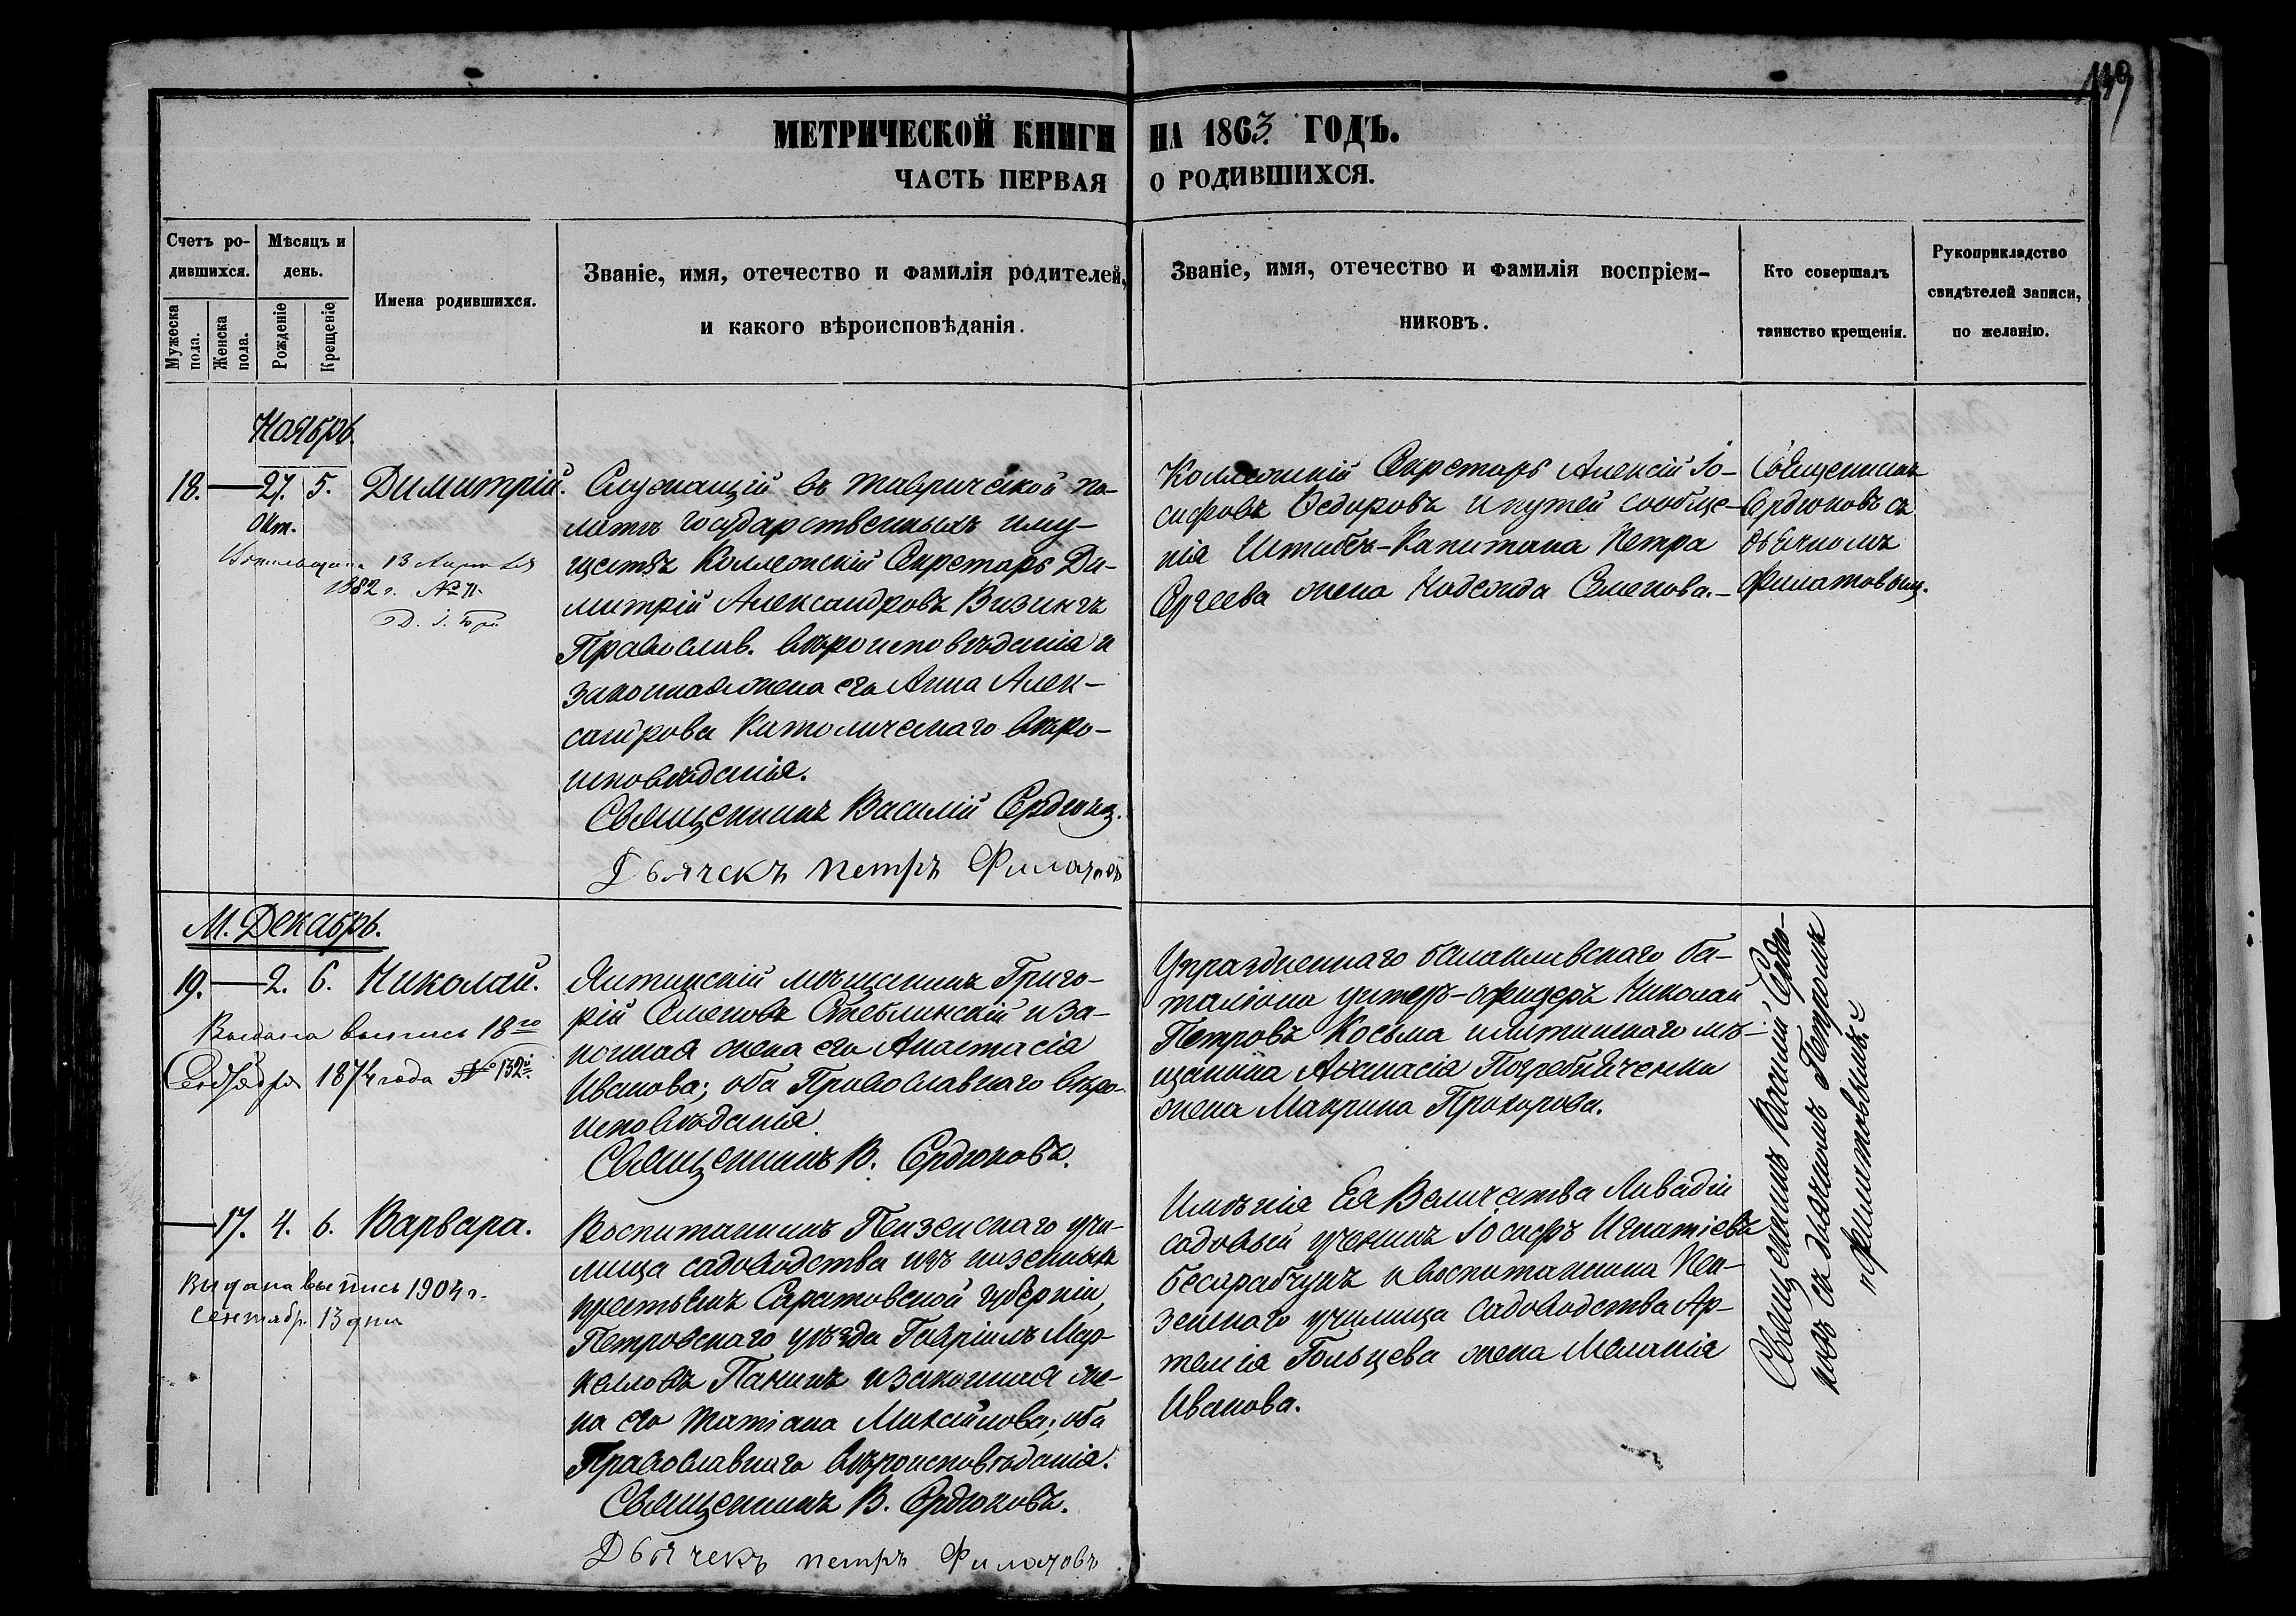 149
МЕТРИЧЕСКОЙ КНИГИ НА 1863 ГОДЪ.
ЧАСТЬ ПЕРВАЯ О РОДИВШИХСЯ.
Счетъ ро-
дившихся.
Мужеска пола.
Женска пола.
Мѣсяцъ и
день.
Рожденіе
Крещеніе
Имена родившихся.
Званіе, имя, отечество и фамилія родителей,
и какого вѣроисповѣданія.
Званіе, имя, отечество и фамилія воспріем-
никовъ.
Кто совершалъ
таинство крещенія.
Рукоприкладство
свидѣтелей записи,
по желанію.
Ноябрь
18. — 27. 5. Димитрій.
Окт.
13
1882 г. №
Служащій въ Таврической па-
латѣ государственныхъ иму-
ществъ Коллежскій Секретарь Ди-
митрій Александровъ Визингъ
Православ. вѣроисповѣданія и
законная жена его Анна Алек-
сандрова Католическаго вѣро-
исповѣданія.
Священникъ Василій Сердюковъ.
Дьячекъ Петръ Филатовъ
Коллежскій Секретарь Алексій Іо-
сифовъ Ѳедоровъ и путей сообще-
нія Штабсъ-Капитана Петра
Сергеева жена Надежда Семенова.—
Священникъ
Сердюковъ съ
дьячкомъ
Филатовымъ.
М. Декабрь.
19. — 2. 6. Николай.
Выдана выпись 18го
Сентября 1874 года № 132й.
Ялтинскій мѣщанинъ Григо-
рій Семеновъ Стеблинскій и за-
конная жена его Анастасія
Иванова; оба Православнаго вѣро-
исповѣданія
Священникъ В. Сердюковъ.
Упраздненнаго балаклавскаго ба-
таліона унтеръ-офицеръ Николай
Петровъ Косьма и ялтинскаго мѣ-
щанина Аѳанасія Погребнѣченки
жена Макрина Прохорова.
— 17. 4. 6. Варвара.
Выдана выпись 1904 г.
Сентябр. 13 дня
Воспитанникъ Пензенскаго учи-
лища садоводства изъ казенныхъ
крестьянъ Саратовской губерніи,
Петровскаго уѣзда Гавріилъ Мар-
келловъ Панинъ и законная же-
на его Татіана Михайлова; оба
Православнаго вѣроисповѣданія.
Священникъ В. Сердюковъ.
Дьячекъ Петръ Филатовъ
Имѣнія Ея Величества Ливадіи
садовый ученикъ Іосифъ Игнатіевъ
Бесарабчукъ и воспитанника Пен-
зенскаго училища садоводства Ар-
темія Гольцева жена Меланія
Иванова.
Священникъ Василій Сердю-
ковъ съ дьячкомъ Петромъ
Филатовымъ